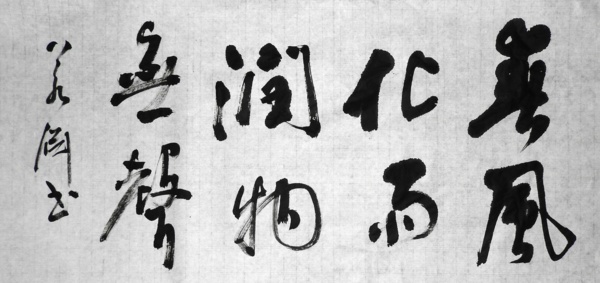 春風
化雨
潤物
無聲
书